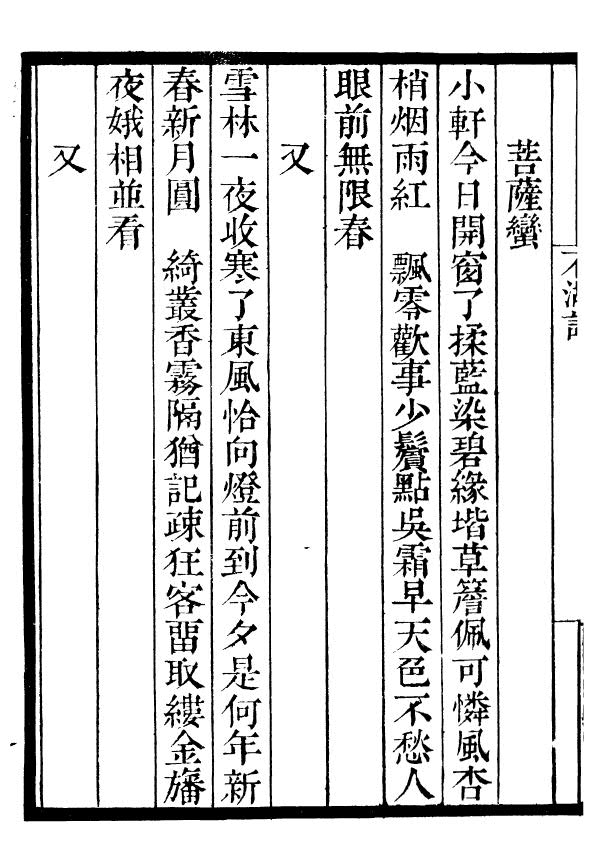 菩薩蠻
小軒今日開窗了揉藍染碧緣堦草簷佩可憐風杏
梢烟雨紅　飄零歡事少鬢點吳霜早天色不愁人
眼前無限春
又
雪林一夜收寒了東風恰向燈前到今夕是何年新
春新月圓　綺叢香霧隔猶記疎狂客畱取縷金旛
夜娥相並看
又